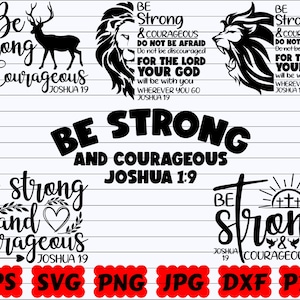 Be
Strong
Courageous
JOSHUA 1:9
BE
Strong
& COURAGEOUS
DO NOT BE AFRAID
Do not be discouraged
FOR THE LORD
YOUR GOD
will be with you
WHEREVER YOU GO
JOSHUA 1:9
BE
Strong
& COURAGEOUS
DO NOT BE
Do not be
FOR THE
YOUR
will be
WHEREVER
JOSHUA 1:9
BE STRONG
AND COURAGEOUS
JOSHUA 1:9
strong
and
JOSHUA 1:9
BE
strong
JOSHUA
1:9
&
COURAGEOUS
SVG
PNG
JPG
DXF